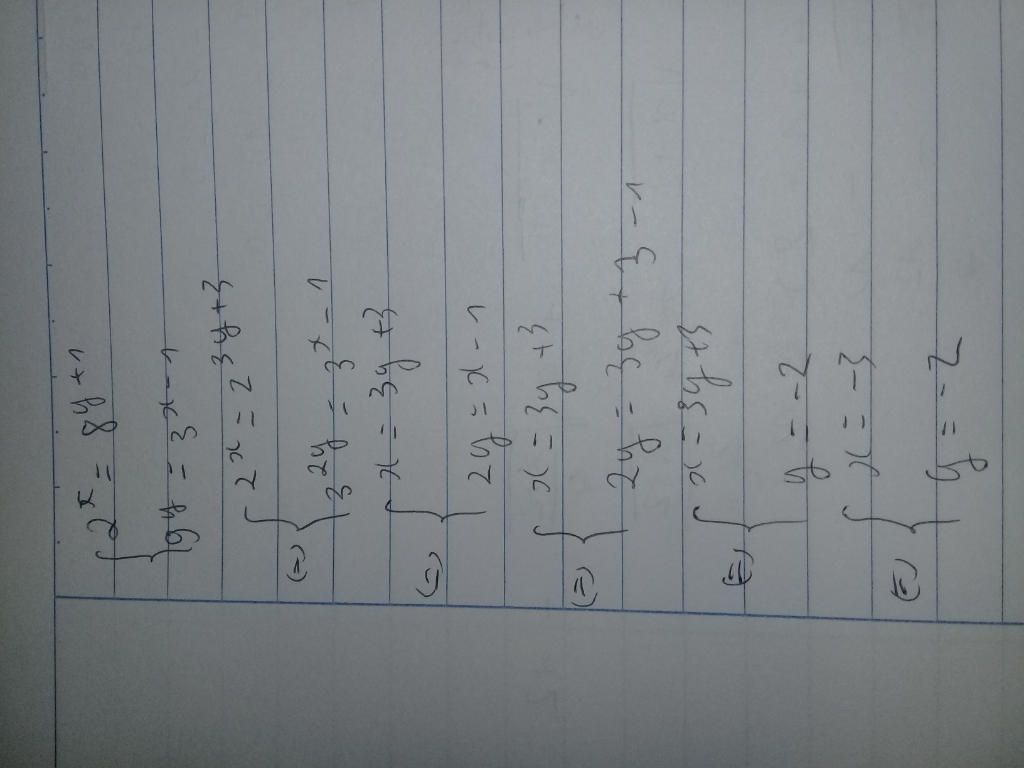 { 2ˣ = 8ʸ⁺¹
9ʸ = 3ˣ⁻¹
(=) { 2ˣ = 2³ʸ⁺³
3²ʸ = 3ˣ⁻¹
(=) { x = 3y + 3
2y = x - 1
(=) { x = 3y + 3
2y = 3y + 3 - 1
(=) { x = 3y + 3
y = -2
(=) { x = -3
y = -2